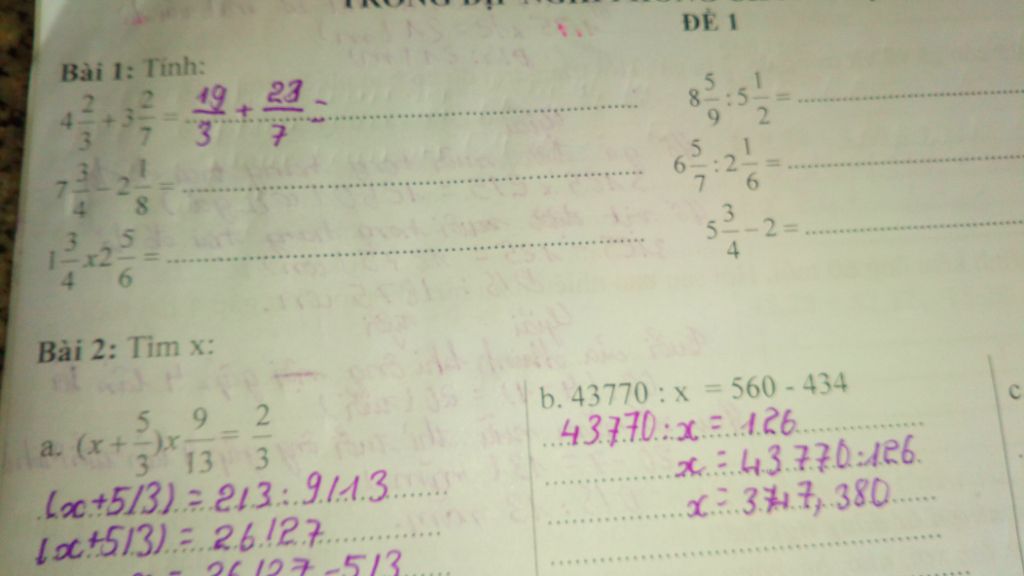 ĐỀ 1
Bài 1: Tính:
4 2/3 + 3 2/7 = 19/3 + 23/7 =
8 5/9 : 5 1/2 =
7 3/4 - 2 1/8 =
6 5/7 : 2 1/6 =
1 3/4 x 2 5/6 =
5 3/4 - 2 =
Bài 2: Tìm x:
a. (x + 5/3) x 9/13 = 2/3
(x+5/3) = 2/3 : 9/13
(x+5/3) = 26/27
x = 26/27 - 5/3
b. 43770 : x = 560 - 434
43770 : x = 126
x = 43770 : 126
x =
c